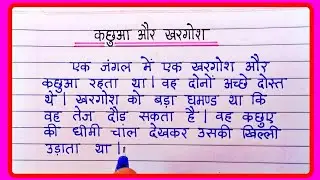 कछुआ और खरगोश
एक जंगल में एक खरगोश और
कछुआ रहता था। वह दोनों अच्छे दोस्त
थे। खरगोश को बड़ा घमण्ड था कि
वह तेज दौड़ सकता है। वह कछुए
की धीमी चांल देखकर उसकी खिल्ली
उड़ाता था।